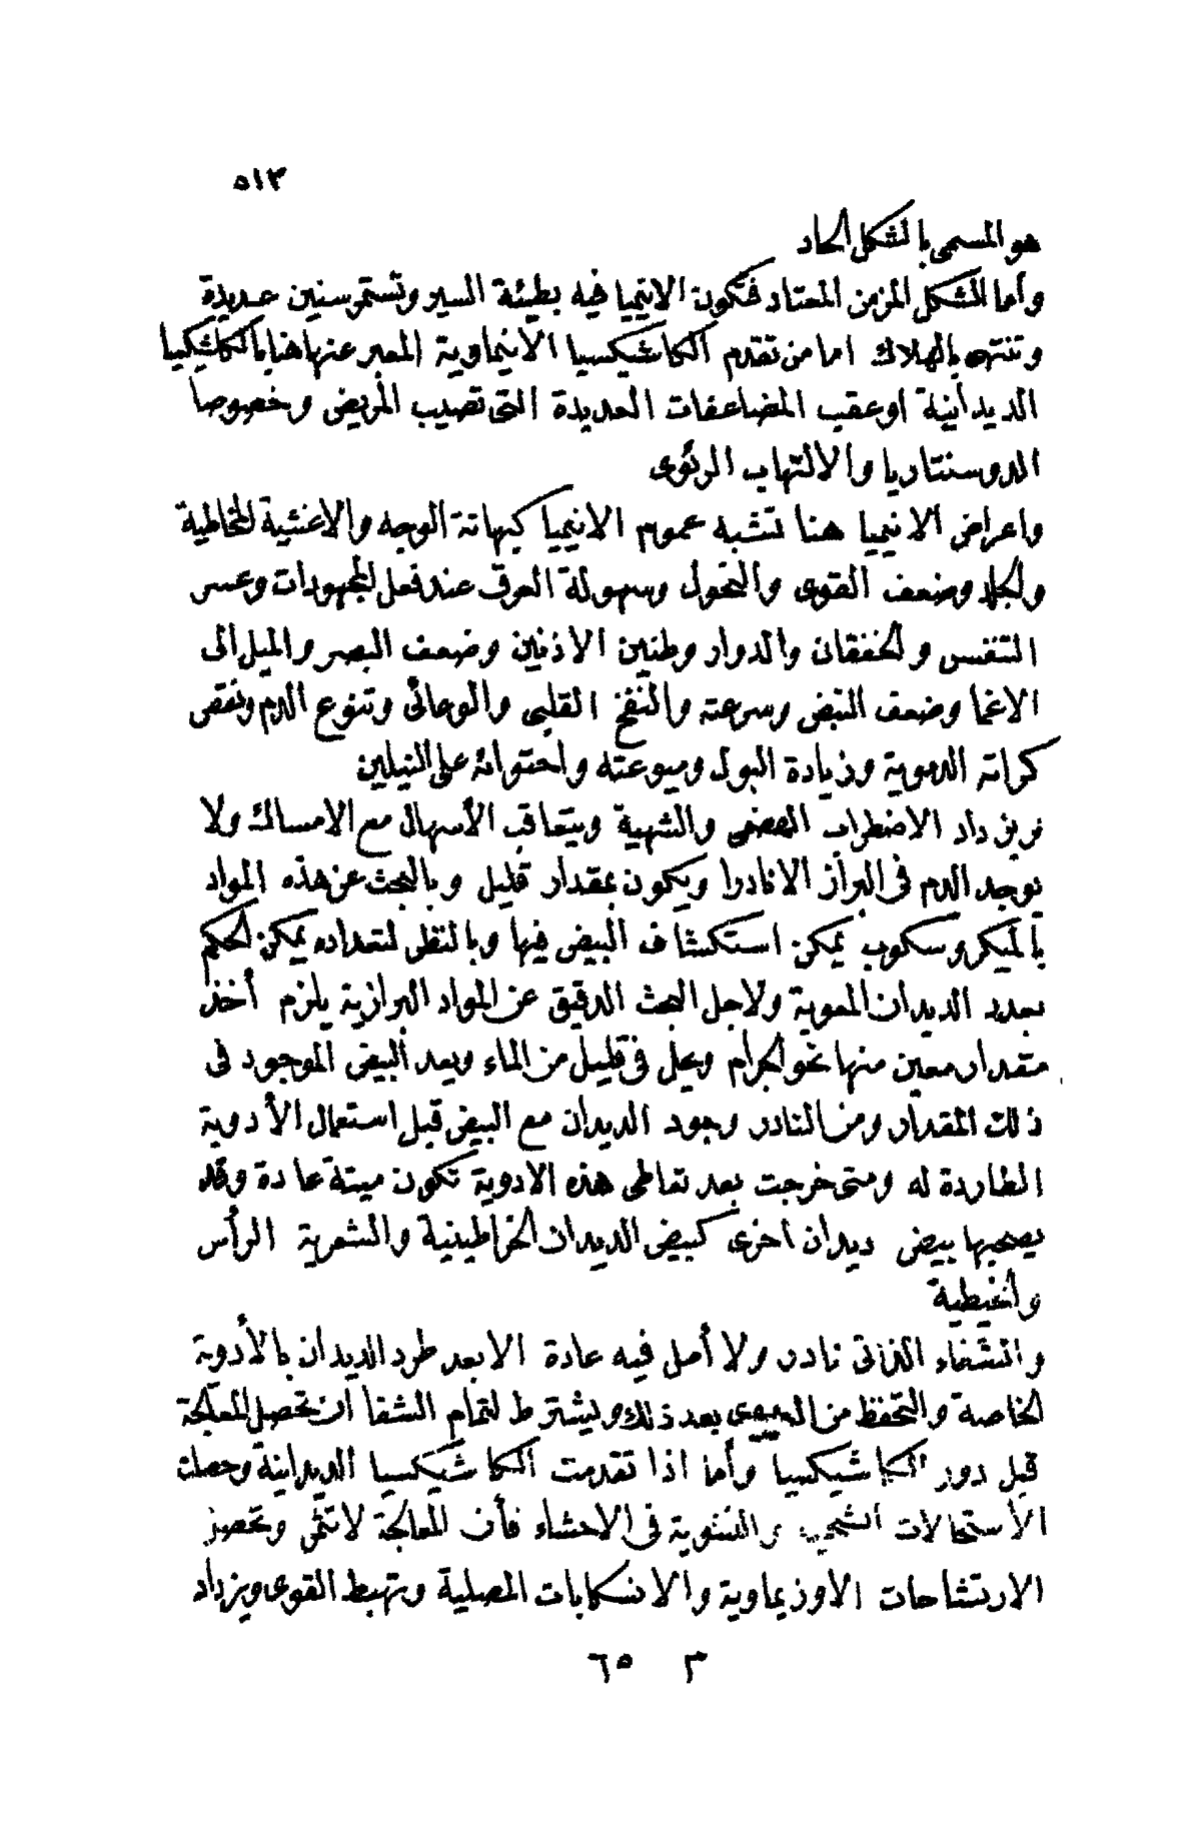 ٥١٣
هو المسمى بالشكل الحاد
وأما الشكل المزمن المعتاد فتكون الانيميا فيه بطيئة السير وتستمر سنين عديدة
وتنتهى بالهلاك اما من تقدم الكاشيكسيا الانيماوية المعبر عنها هنا بالكاشيكسيا
الديدانية اوعقب المضاعفات العديدة التى تصيب المريض وخصوصا
الدوسنتاريا والالتهاب الرئوى
واعراض الانيميا هنا تشبه عموم الانيميا كبهاتة الوجه والاغشية المخاطية
والجلد وضعف القوى والنحول وسهولة العرق عند فعل المجهودات وعسر
التنفس والخفقان والدوار وطنين الاذنين وضعف البصر والميل الى
الاغما وضعف النبض وسرعته والنفخ القلبى والوعائى وتنوع الدم ونقص
كراته الدموية وزيادة البول وميوعته واحتوائه على النيلين
فيزداد الاضطراب الهضمى والشهية ويتعاقب الأسهال مع الامساك ولا
يوجد الدم فى البراز الا نادرا ويكون بمقدار قليل وبالبحث عن هذه المواد
بالميكروسكوب يمكن استكشاف البيض فيها وبالنظر لتعداده يمكن الحكم
بعدد الديدان المعوية ولاجل البحث الدقيق عن المواد البرازية يلزم أخذ
مقدار معين منها نحو الجرام ويحل فى قليل من الماء ويعد البيض الموجود فى
ذلك المقدار ومن النادر وجود الديدان مع البيض قبل استعمال الأدوية
الطاردة له ومتى خرجت بعد تعاطى هذه الادوية تكون ميتة عادة وقد
يصحبها بيض ديدان اخرى كبيض الديدان الخراطينية والشعرية الرأس
والخيطية
والشفاء الذاتى نادر ولا أمل فيه عادة الا بعد طرد الديدان بالأدوية
الخاصة والتحفظ من العدوى بعد ذلك ويشترط لتمام الشفا ان تحصل المعالجة
قبل دور الكاشيكسيا وأما اذا تقدمت الكاشيكسيا الديدانية وحصلت
الأستحالات الشحمية والنشوية فى الاحشاء فأن المعالجة لا تثمر وتحصل
الارتشاحات الاوزيماوية والانسكابات المصلية وتهبط القوى ويزداد
٦٥ م